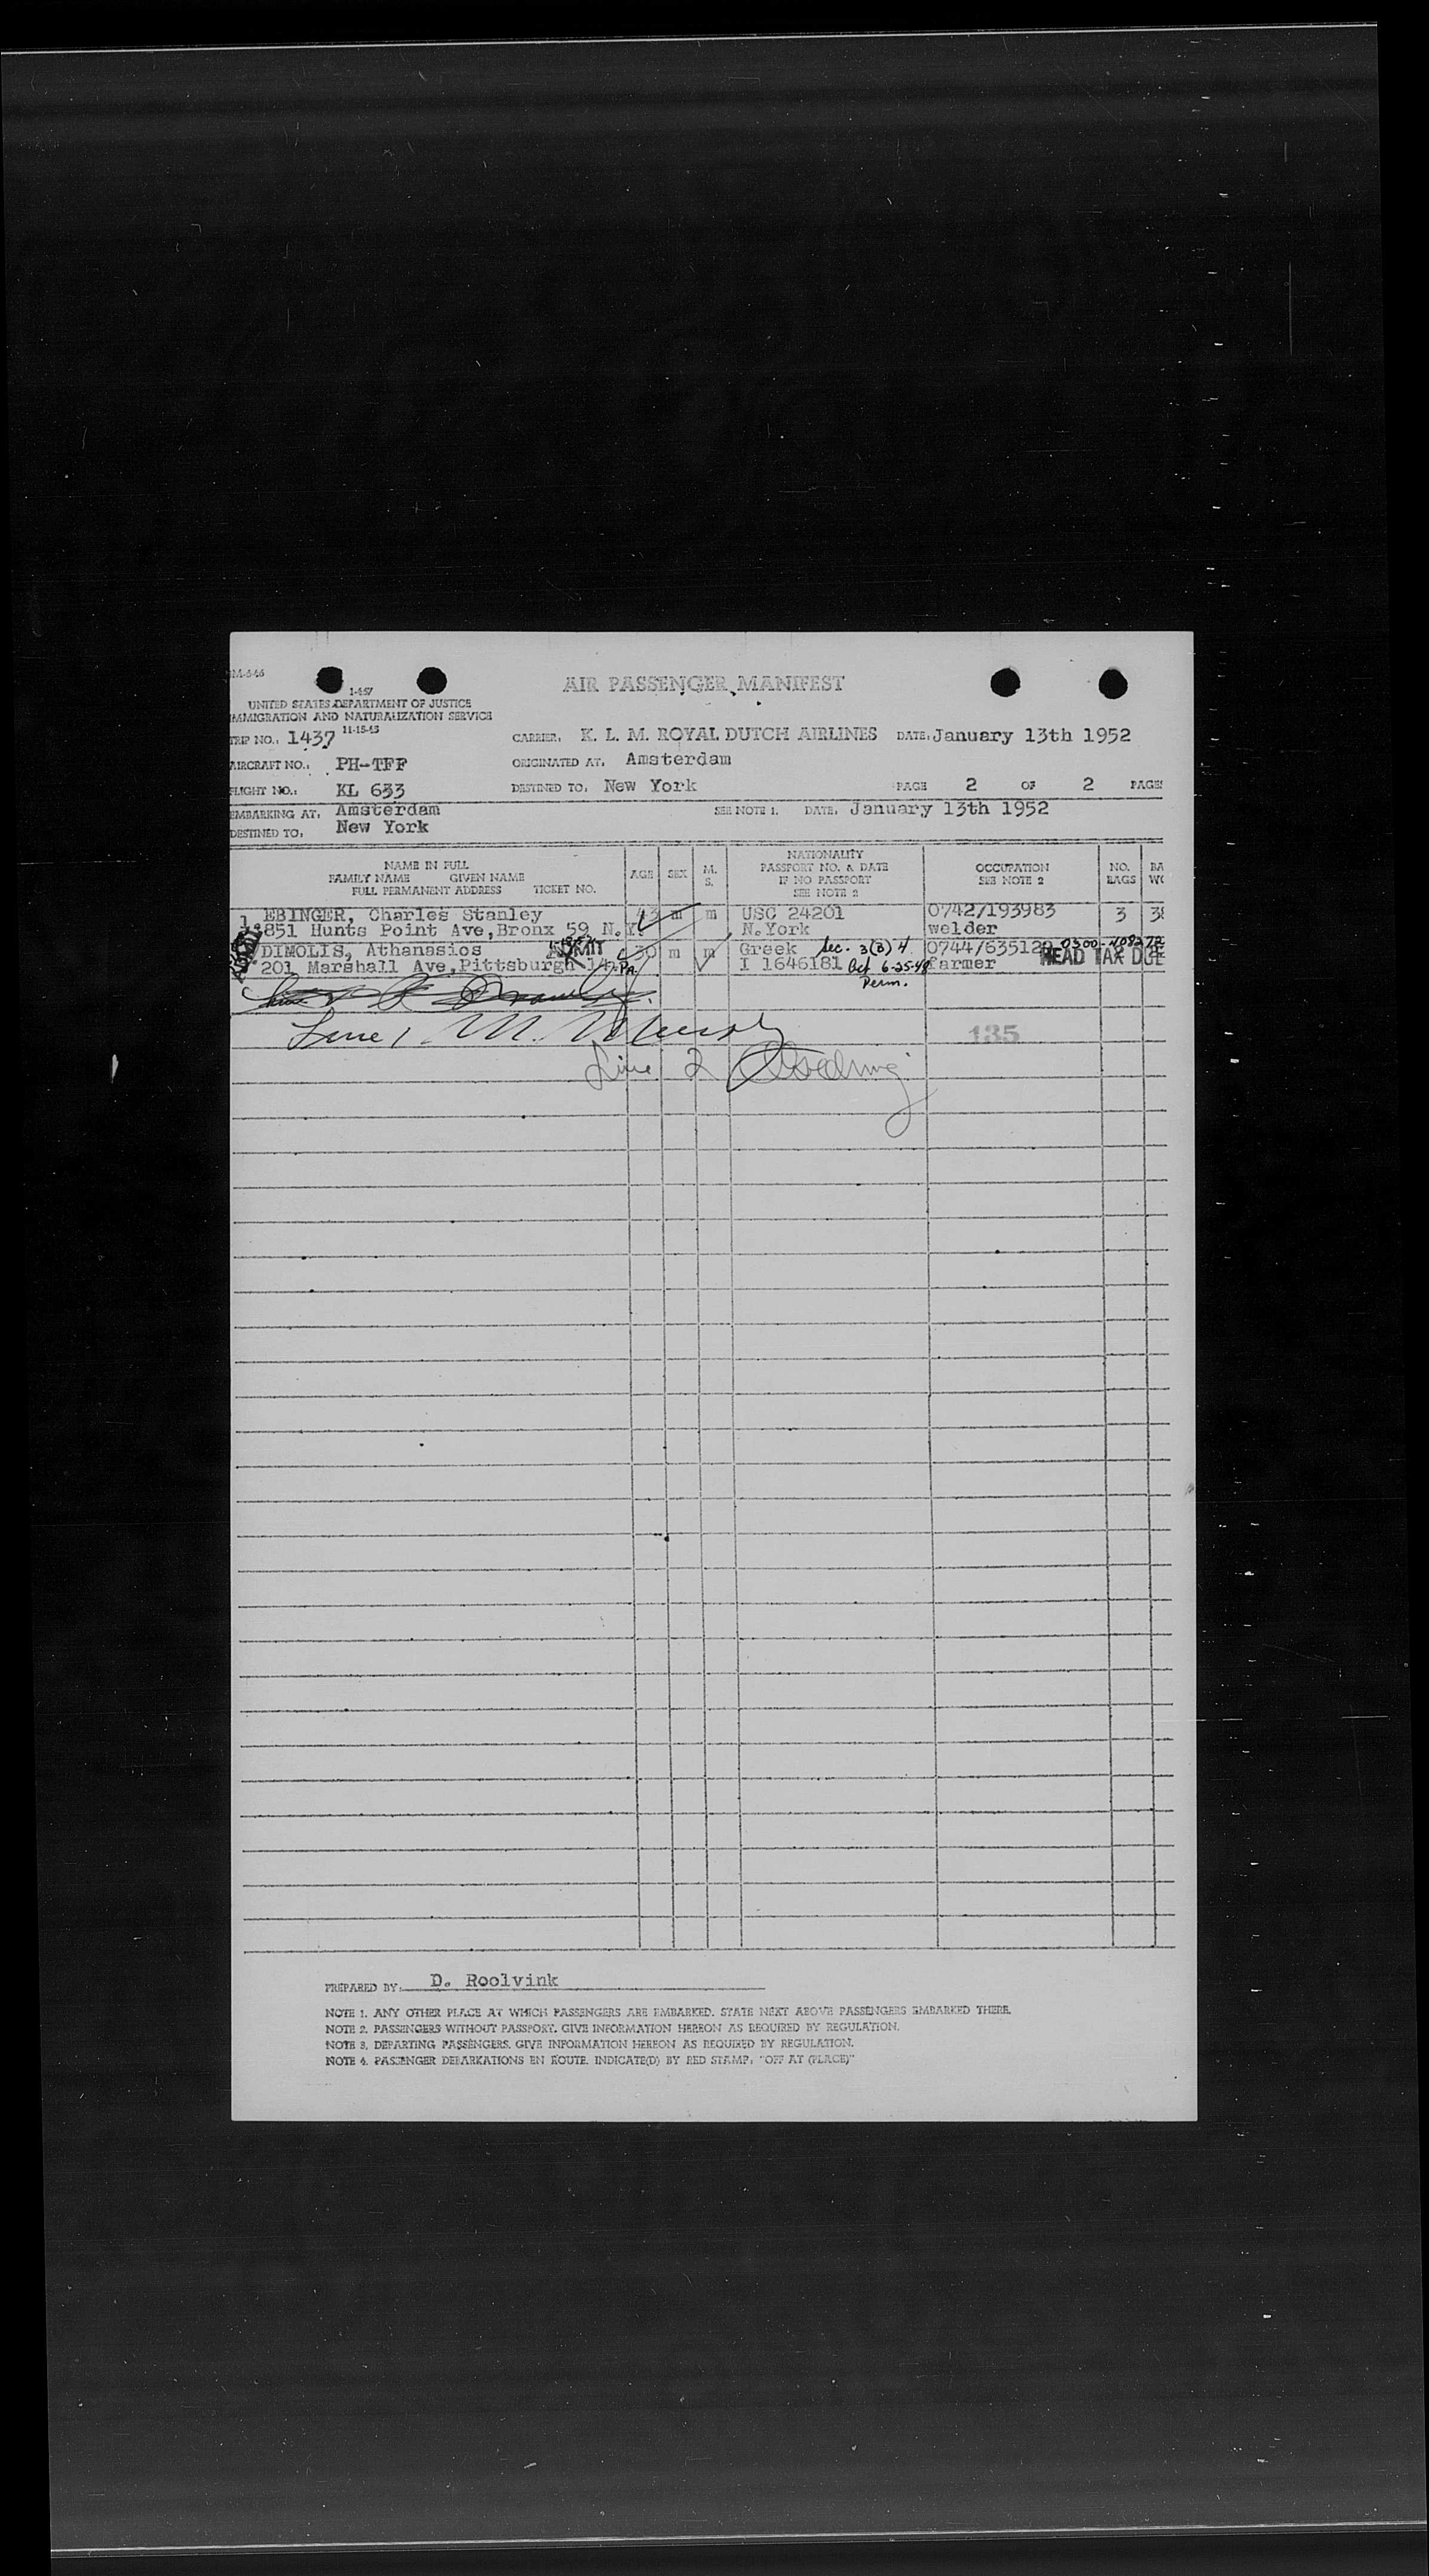 AIR PASSENGER MANIFEST
I-457
UNITED STATES DEPARTMENT OF JUSTICE
IMMIGRATION AND NATURALIZATION SERVICE
11-15-45
TRIP NO.: 1437 CARRIER: K. L. M. ROYAL DUTCH AIRLINES DATE: January 13th 1952
AIRCRAFT NO.: PH-TFF ORIGINATED AT: Amsterdam
FLIGHT NO.: KL 653 DESTINED TO: New York PAGE 2 OF 2 PAGES
EMBARKING AT: Amsterdam SEE NOTE 1. DATE: January 13th 1952
DESTINED TO: New York
NAME IN FULL
FAMILY NAME GIVEN NAME
FULL PERMANENT ADDRESS TICKET NO.
AGE SEX M. S.
NATIONALITY
PASSPORT NO. & DATE
IF NO PASSPORT
SEE NOTE 2
OCCUPATION
SEE NOTE 2
NO. BAGS
1. EBINGER, Charles Stanley 43 m m USC 24201 0742/193983 3 38
851 Hunts Point Ave, Bronx 59, N.Y. N.York welder
DIMOLIS, Athanasios ADMIT 30 m m Greek Sec. 3(B) 4 0744/635129 0300-408272
201 Marshall Ave, Pittsburgh 14, Pa. I 1646181 Act 6-25-48 farmer HEAD TAX DUE
Perm.
Line 1. M. Murphy 135
Line 2
PREPARED BY: D. Roolvink
NOTE 1. ANY OTHER PLACE AT WHICH PASSENGERS ARE EMBARKED. STATE NEXT ABOVE PASSENGERS EMBARKED THERE.
NOTE 2. PASSENGERS WITHOUT PASSPORT. GIVE INFORMATION HEREON AS REQUIRED BY REGULATION.
NOTE 3. DEPARTING PASSENGERS. GIVE INFORMATION HEREON AS REQUIRED BY REGULATION.
NOTE 4. PASSENGER DEBARKATIONS EN ROUTE. INDICATE(D) BY RED STAMP: "OFF AT (PLACE)"